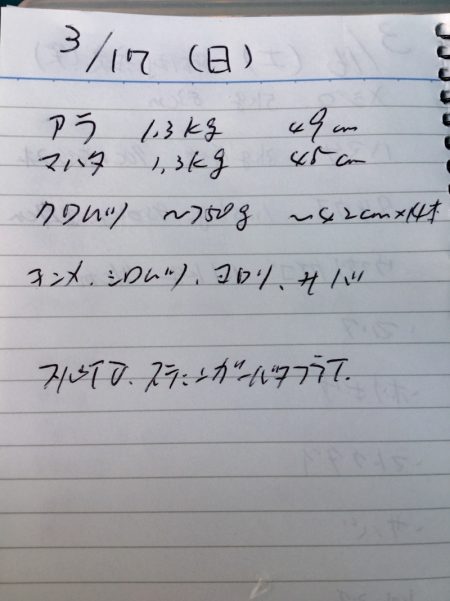 3/17 (日)
アラ 1,3kg 49cm
マハタ 1,3kg 45cm
クロムツ ～750g ～42cm×14才
キンメ、シロムツ、ヨロリ、サバ
スティンガーバタフライ.